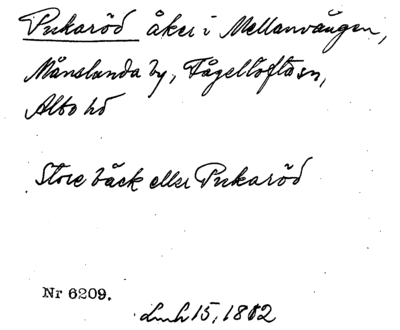 Pukaröd åker i Mellanvången,
Månslunda by, Fågeltofta sn,
Albo hd
Store bäck eller Pukaröd
Nr 6209.
Lmh 15, 1812